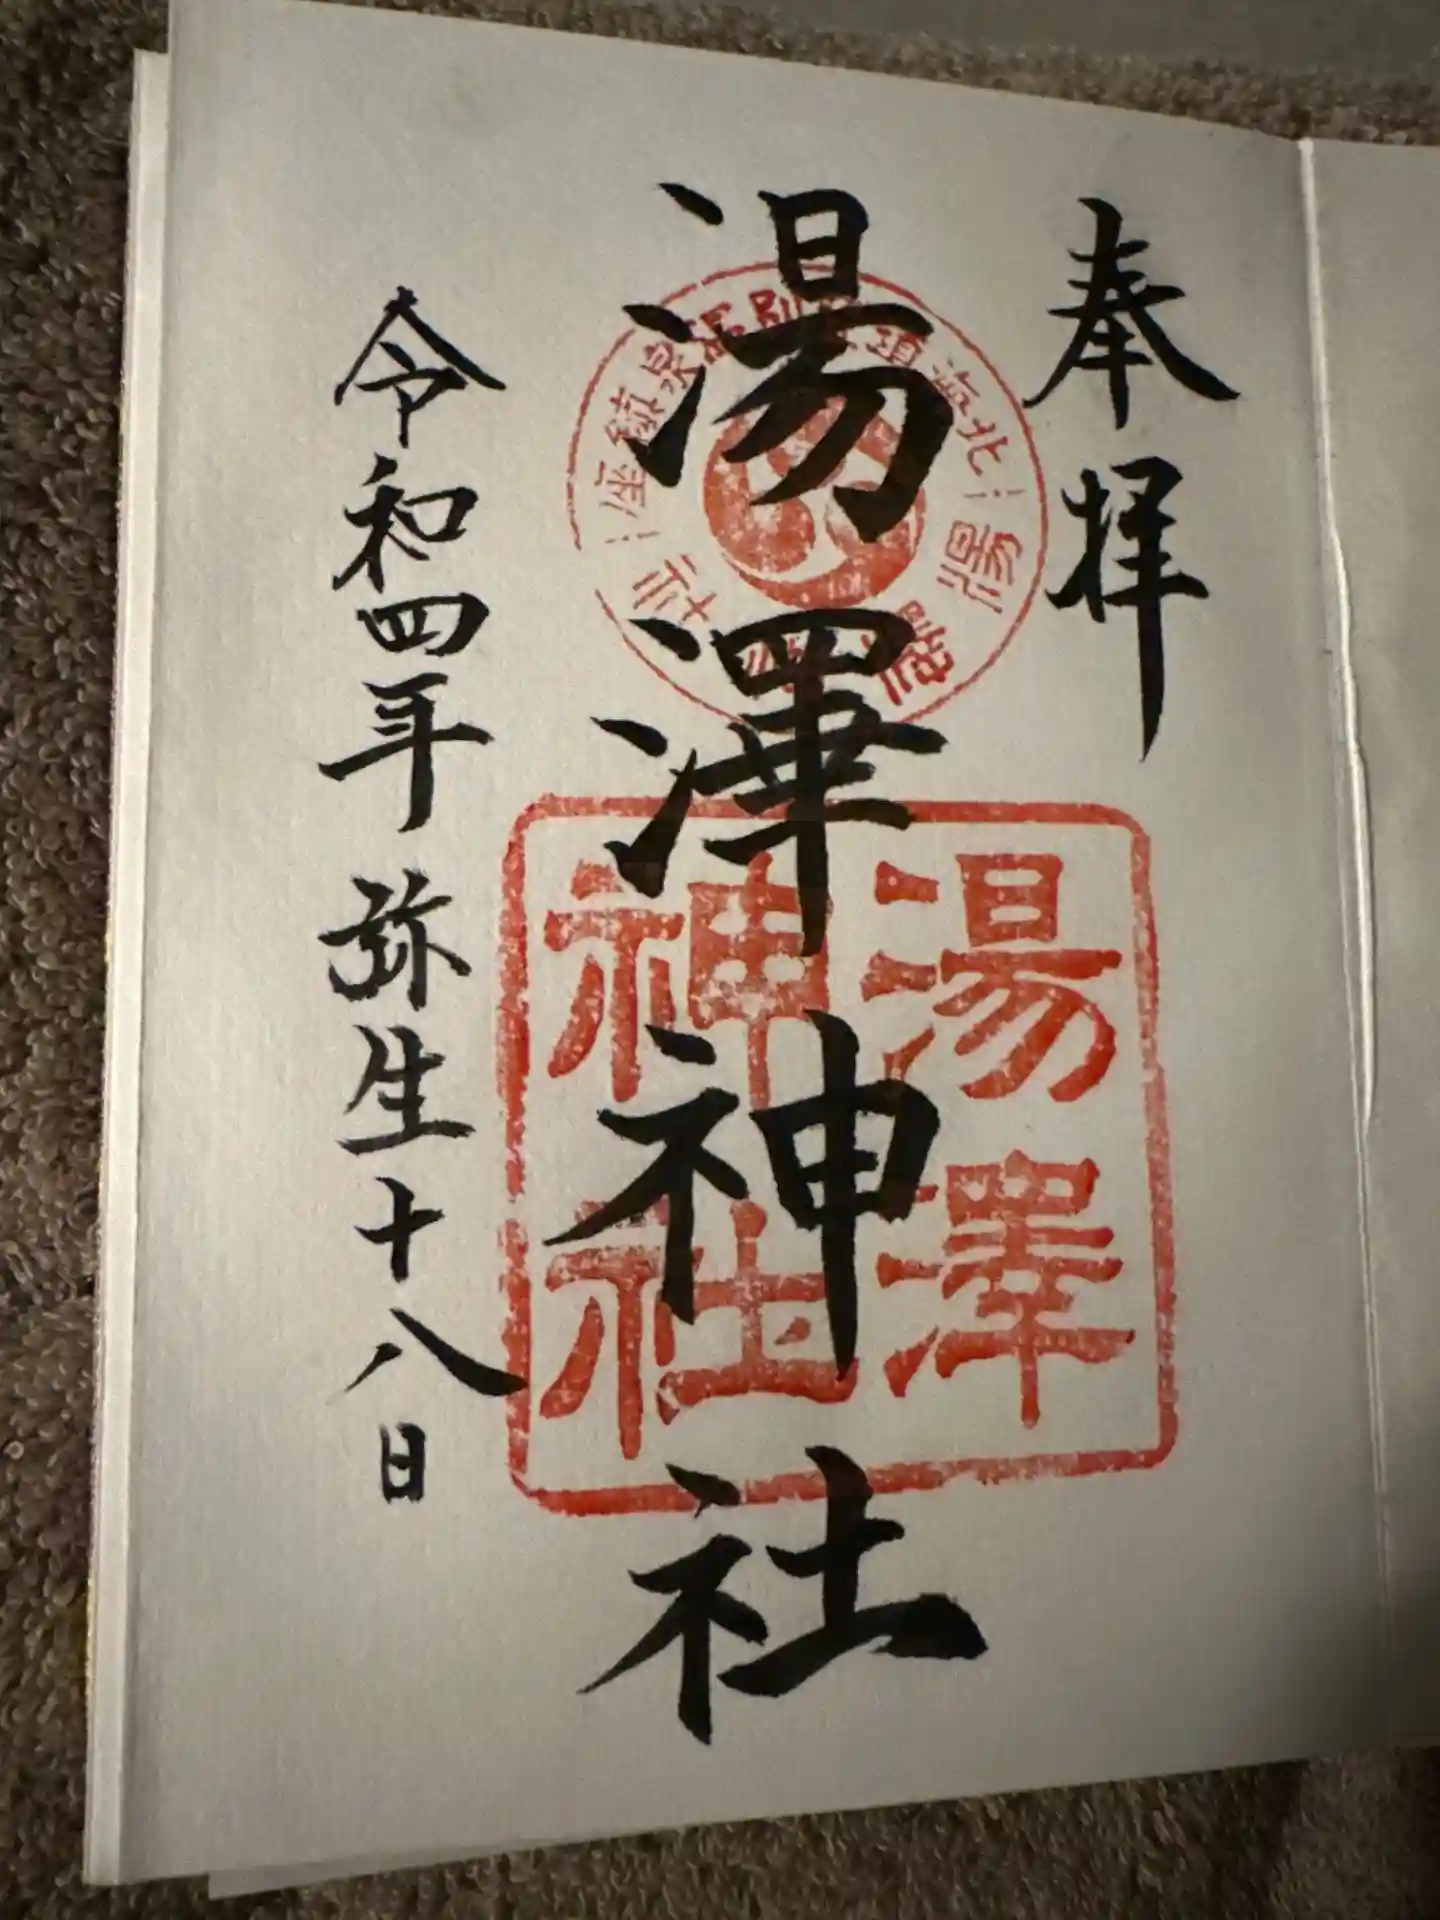 奉拝
湯澤神社
北海道登別温泉鎮座
湯澤神社
湯澤
神社
令和四年弥生十八日